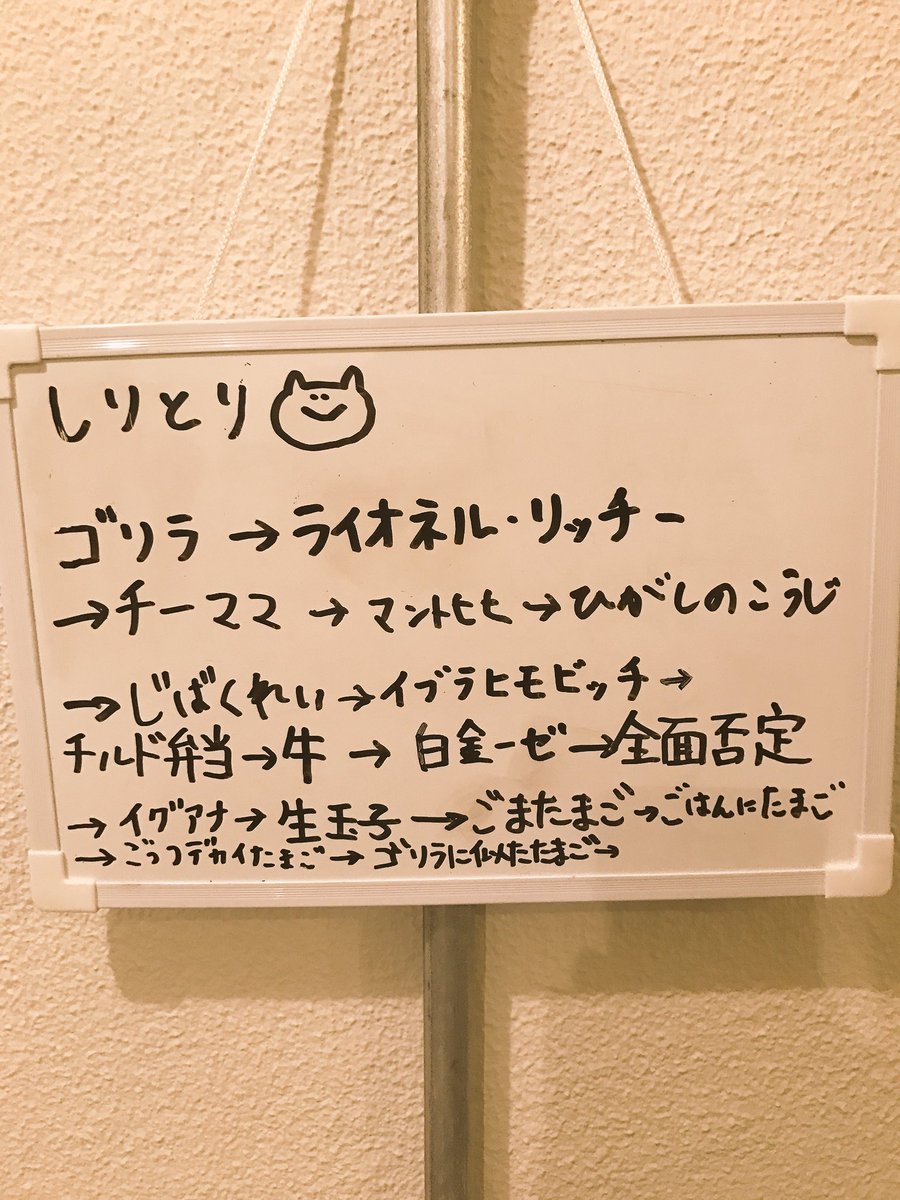 しりとり
ゴリラ→ライオネル・リッチー
→チーママ→マントヒヒ→ひがしのこうじ
→じばくれい→イブラヒモビッチ→
チルド弁当→牛→白金ーゼ→全面否定
→イグアナ→生玉子→ごまたまご→ごはんにたまご
→ごっつデカイたまご→ゴリラに似たたまご→